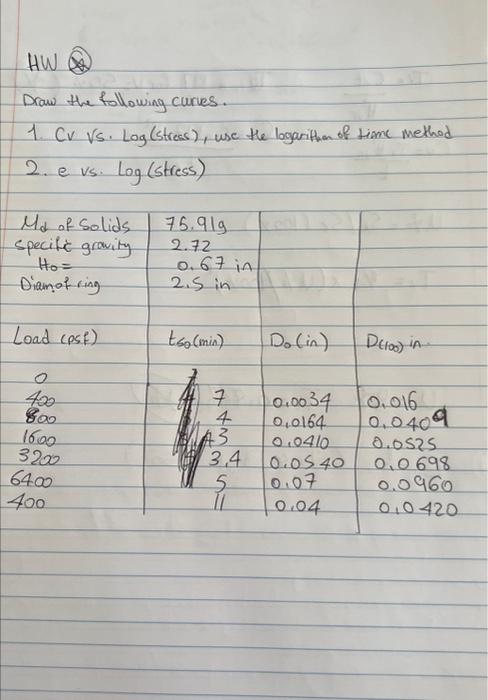 HW
Draw the following curves.
1. Cv Vs. Log (stress), use the logarithm of time method
2. e vs. Log (stress)
Md of Solids 75.91g
specific gravity 2.72
Ho = 0.67 in
Diam of ring 2.5 in
Load (psf) t50 (min) Do (in) D(100) in
0
400 7 0.0034 0.016
800 4 0.0164 0.0409
1600 3 0.0410 0.0525
3200 3.4 0.0540 0.0698
6400 5 0.07 0.0960
400 11 0.04 0.0420